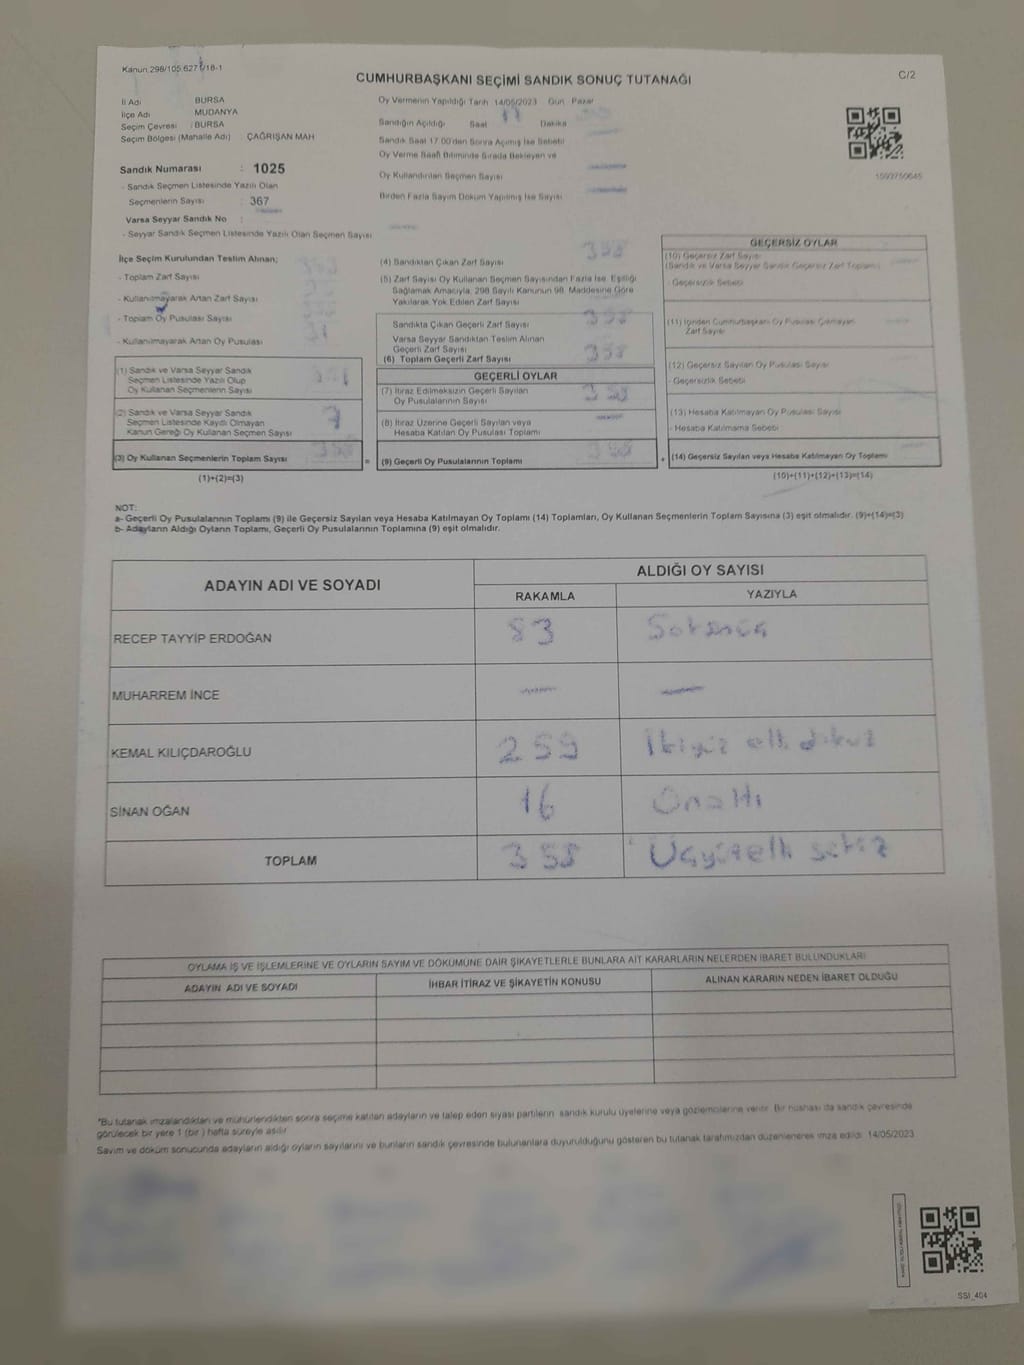 Kanun 298/105.627 /18-1
CUMHURBAŞKANI SEÇİMİ SANDIK SONUÇ TUTANAĞI
C/2
İl Adı BURSA
İlçe Adı MUDANYA
Seçim Çevresi : BURSA
Seçim Bölgesi (Mahalle Adı) : ÇAĞRIŞAN MAH
Oy Vermenin Yapıldığı Tarih 14/05/2023 Gün Pazar
Sandığın Açıldığı Saat Dakika
Sandık Saat 17.00'den Sonra Açılmış İse Sebebi
Oy Verme Saati Bitiminde Sırada Bekleyen ve
Oy Kullandırılan Seçmen Sayısı
Birden Fazla Sayım Döküm Yapılmış İse Sayısı
1593750645
Sandık Numarası : 1025
- Sandık Seçmen Listesinde Yazılı Olan
Seçmenlerin Sayısı : 367
Varsa Seyyar Sandık No :
- Seyyar Sandık Seçmen Listesinde Yazılı Olan Seçmen Sayısı
İlçe Seçim Kurulundan Teslim Alınan;
- Toplam Zarf Sayısı
- Kullanılmayarak Artan Zarf Sayısı
- Toplam Oy Pusulası Sayısı
- Kullanılmayarak Artan Oy Pusulası
(1) Sandık ve Varsa Seyyar Sandık
Seçmen Listesinde Yazılı Olup
Oy Kullanan Seçmenlerin Sayısı 351
(2) Sandık ve Varsa Seyyar Sandık
Seçmen Listesinde Kaydı Olmayan
Kanun Gereği Oy Kullanan Seçmen Sayısı 7
(3) Oy Kullanan Seçmenlerin Toplam Sayısı 358 =
(1)+(2)=(3)
(4) Sandıktan Çıkan Zarf Sayısı 358
(5) Zarf Sayısı Oy Kullanan Seçmen Sayısından Fazla İse, Eşitliği
Sağlamak Amacıyla, 298 Sayılı Kanunun 98. Maddesine Göre
Yakılarak Yok Edilen Zarf Sayısı
Sandıkta Çıkan Geçerli Zarf Sayısı 358
Varsa Seyyar Sandıktan Teslim Alınan
Geçerli Zarf Sayısı
(6) Toplam Geçerli Zarf Sayısı 358
GEÇERLİ OYLAR
(7) İtiraz Edilmeksizin Geçerli Sayılan
Oy Pusulalarının Sayısı 358
(8) İtiraz Üzerine Geçerli Sayılan veya
Hesaba Katılan Oy Pusulası Toplamı
(9) Geçerli Oy Pusulalarının Toplamı 358 +
GEÇERSİZ OYLAR
(10) Geçersiz Zarf Sayısı
(Sandık ve Varsa Seyyar Sandık Geçersiz Zarf Toplamı)
- Geçersizlik Sebebi
(11) İçinden Cumhurbaşkanı Oy Pusulası Çıkmayan
Zarf Sayısı
(12) Geçersiz Sayılan Oy Pusulası Sayısı
- Geçersizlik Sebebi
(13) Hesaba Katılmayan Oy Pusulası Sayısı
- Hesaba Katılmama Sebebi
(14) Geçersiz Sayılan veya Hesaba Katılmayan Oy Toplamı
(10)+(11)+(12)+(13)=(14)
NOT:
a- Geçerli Oy Pusulalarının Toplamı (9) ile Geçersiz Sayılan veya Hesaba Katılmayan Oy Toplamı (14) Toplamları, Oy Kullanan Seçmenlerin Toplam Sayısına (3) eşit olmalıdır. (9)+(14)=(3)
b- Adayların Aldığı Oyların Toplamı, Geçerli Oy Pusulalarının Toplamına (9) eşit olmalıdır.
ADAYIN ADI VE SOYADI
ALDIĞI OY SAYISI
RAKAMLA YAZIYLA
RECEP TAYYİP ERDOĞAN 83
MUHARREM İNCE — —
KEMAL KILIÇDAROĞLU 259 İkiyüz elli dokuz
SİNAN OĞAN 16 Onaltı
TOPLAM 358 Üçyüzelli sekiz
OYLAMA İŞ VE İŞLEMLERİNE VE OYLARIN SAYIM VE DÖKÜMÜNE DAİR ŞİKAYETLERLE BUNLARA AİT KARARLARIN NELERDEN İBARET BULUNDUKLARI
ADAYIN ADI VE SOYADI İHBAR İTİRAZ VE ŞİKAYETİN KONUSU ALINAN KARARIN NEDEN İBARET OLDUĞU
*Bu tutanak imzalandıktan ve mühürlendikten sonra seçime katılan adayların ve talep eden siyasi partilerin sandık kurulu üyelerine veya gözlemcilerine verilir. Bir nüshası da sandık çevresinde
görülecek bir yere 1 (bir ) hafta süreyle asılır.
Sayım ve döküm sonucunda adayların aldığı oyların sayılarını ve bunların sandık çevresinde bulunanlara duyurulduğunu gösteren bu tutanak tarafımızdan düzenlenerek imza edildi. 14/05/2023
SSI_404